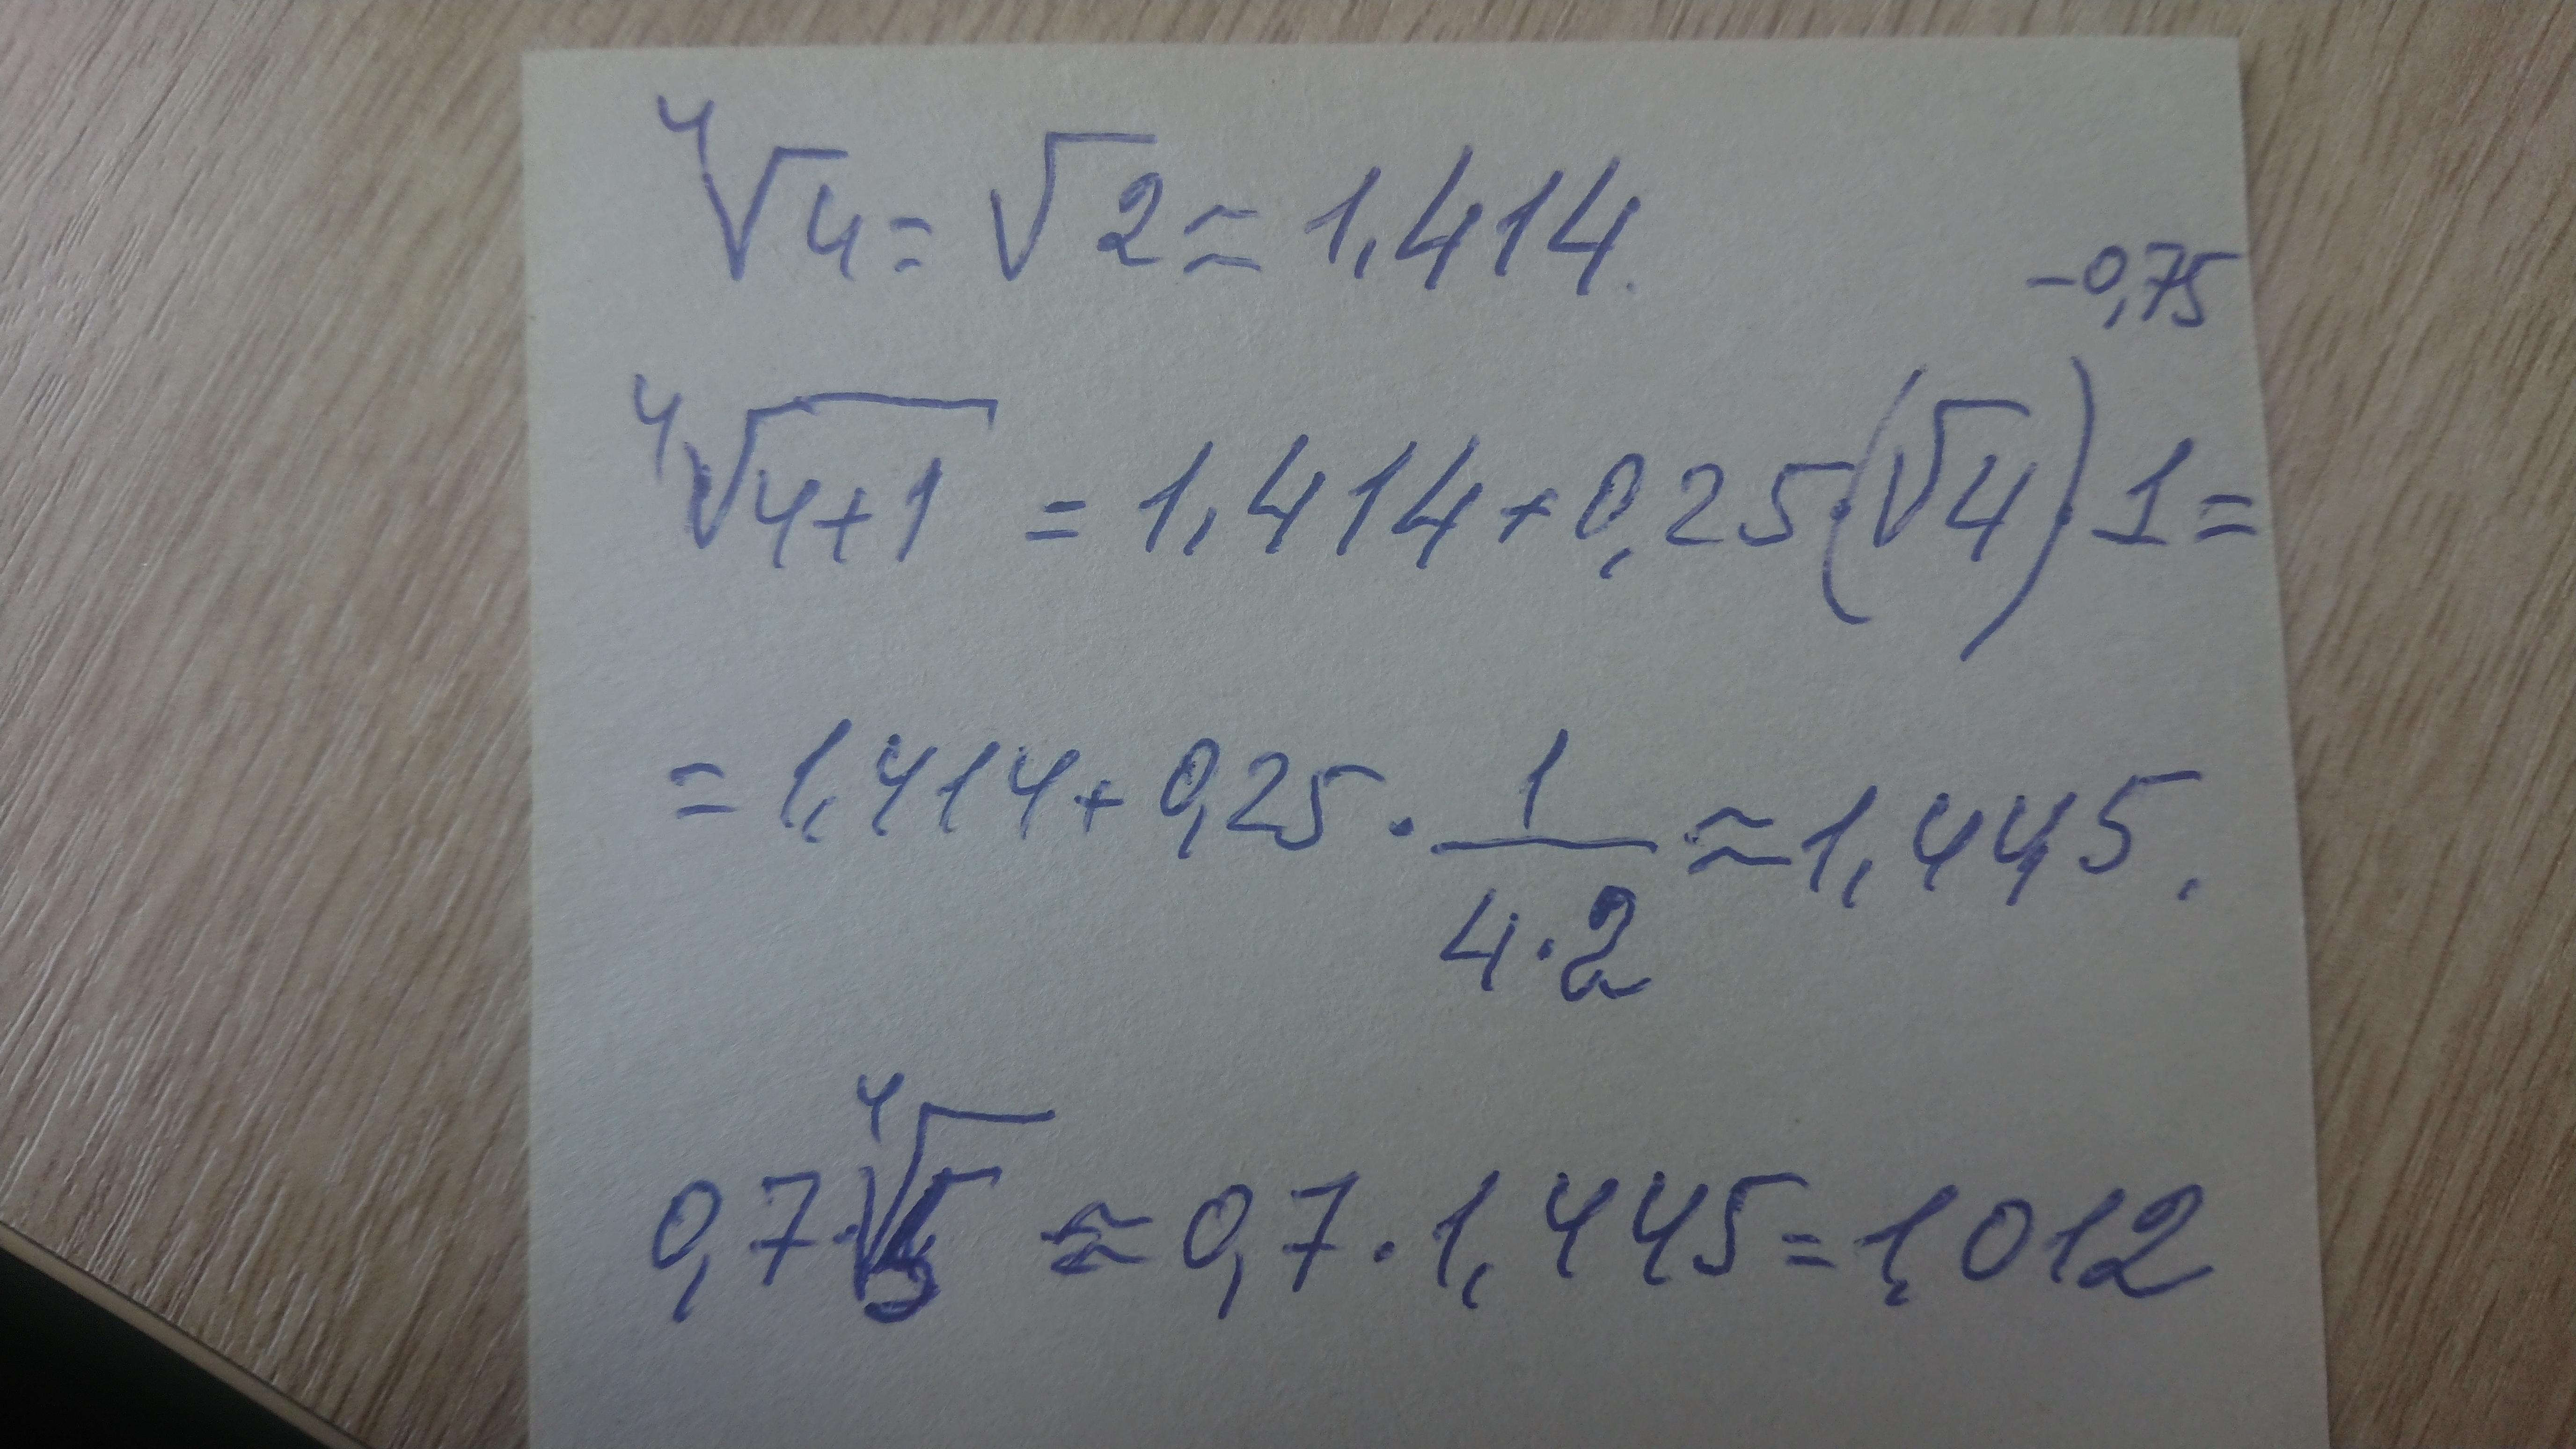 ⁴√4 = √2 ≈ 1,414.
⁴√(4+1) = 1,414 + 0,25·(√4)^(-0,75)·1 =
= 1,414 + 0,25 · 1/(4·2) ≈ 1,445.
0,7·⁴√5 ≈ 0,7 · 1,445 = 1,012